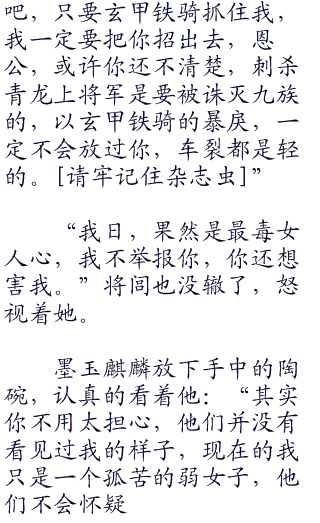 吧，只要玄甲铁骑抓住我，
我一定要把你招出去，恩
公，或许你还不清楚，刺杀
青龙上将军是要被诛灭九族
的，以玄甲铁骑的暴戾，一
定不会放过你，车裂都是轻
的。[请牢记住杂志虫]”
“我日，果然是最毒女
人心，我不举报你，你还想
害我。”将闾也没辙了，怒
视着她。
墨玉麒麟放下手中的陶
碗，认真的看着他：“其实
你不用太担心，他们并没有
看见过我的样子，现在的我
只是一个孤苦的弱女子，他
们不会怀疑